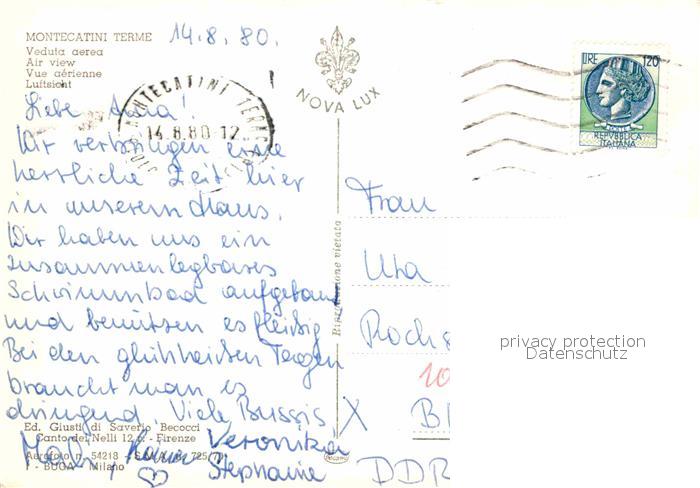 MONTECATINI TERME 14.8.80.
Veduta aerea
Air view
Vue aérienne
Luftsicht
NOVA LUX
LIRE 120
REPVBBLICA
ITALIANA
MONTECATINI TERME
14.8.80-12
Liebe
Wir verbringen eine
herrliche Zeit hier
in unserem Haus.
Wir haben uns ein
zusammenlegbares
Schwimmbad aufgebaut
und benützen es fleißig
Bei den glühheißen Tagen
braucht man es
dringend. Viele Bussis
Veronika
Stephanie
Ed. Giusti di Saverio Becocci
Canto dei Nelli 12 r. - Firenze
Aerofoto n. 54218 - S.M.A. 725/70
- BUGA - Milano
Riproduzione vietata
Frau
Uta
Rochs
10
X B
DDR
privacy protection
Datenschutz